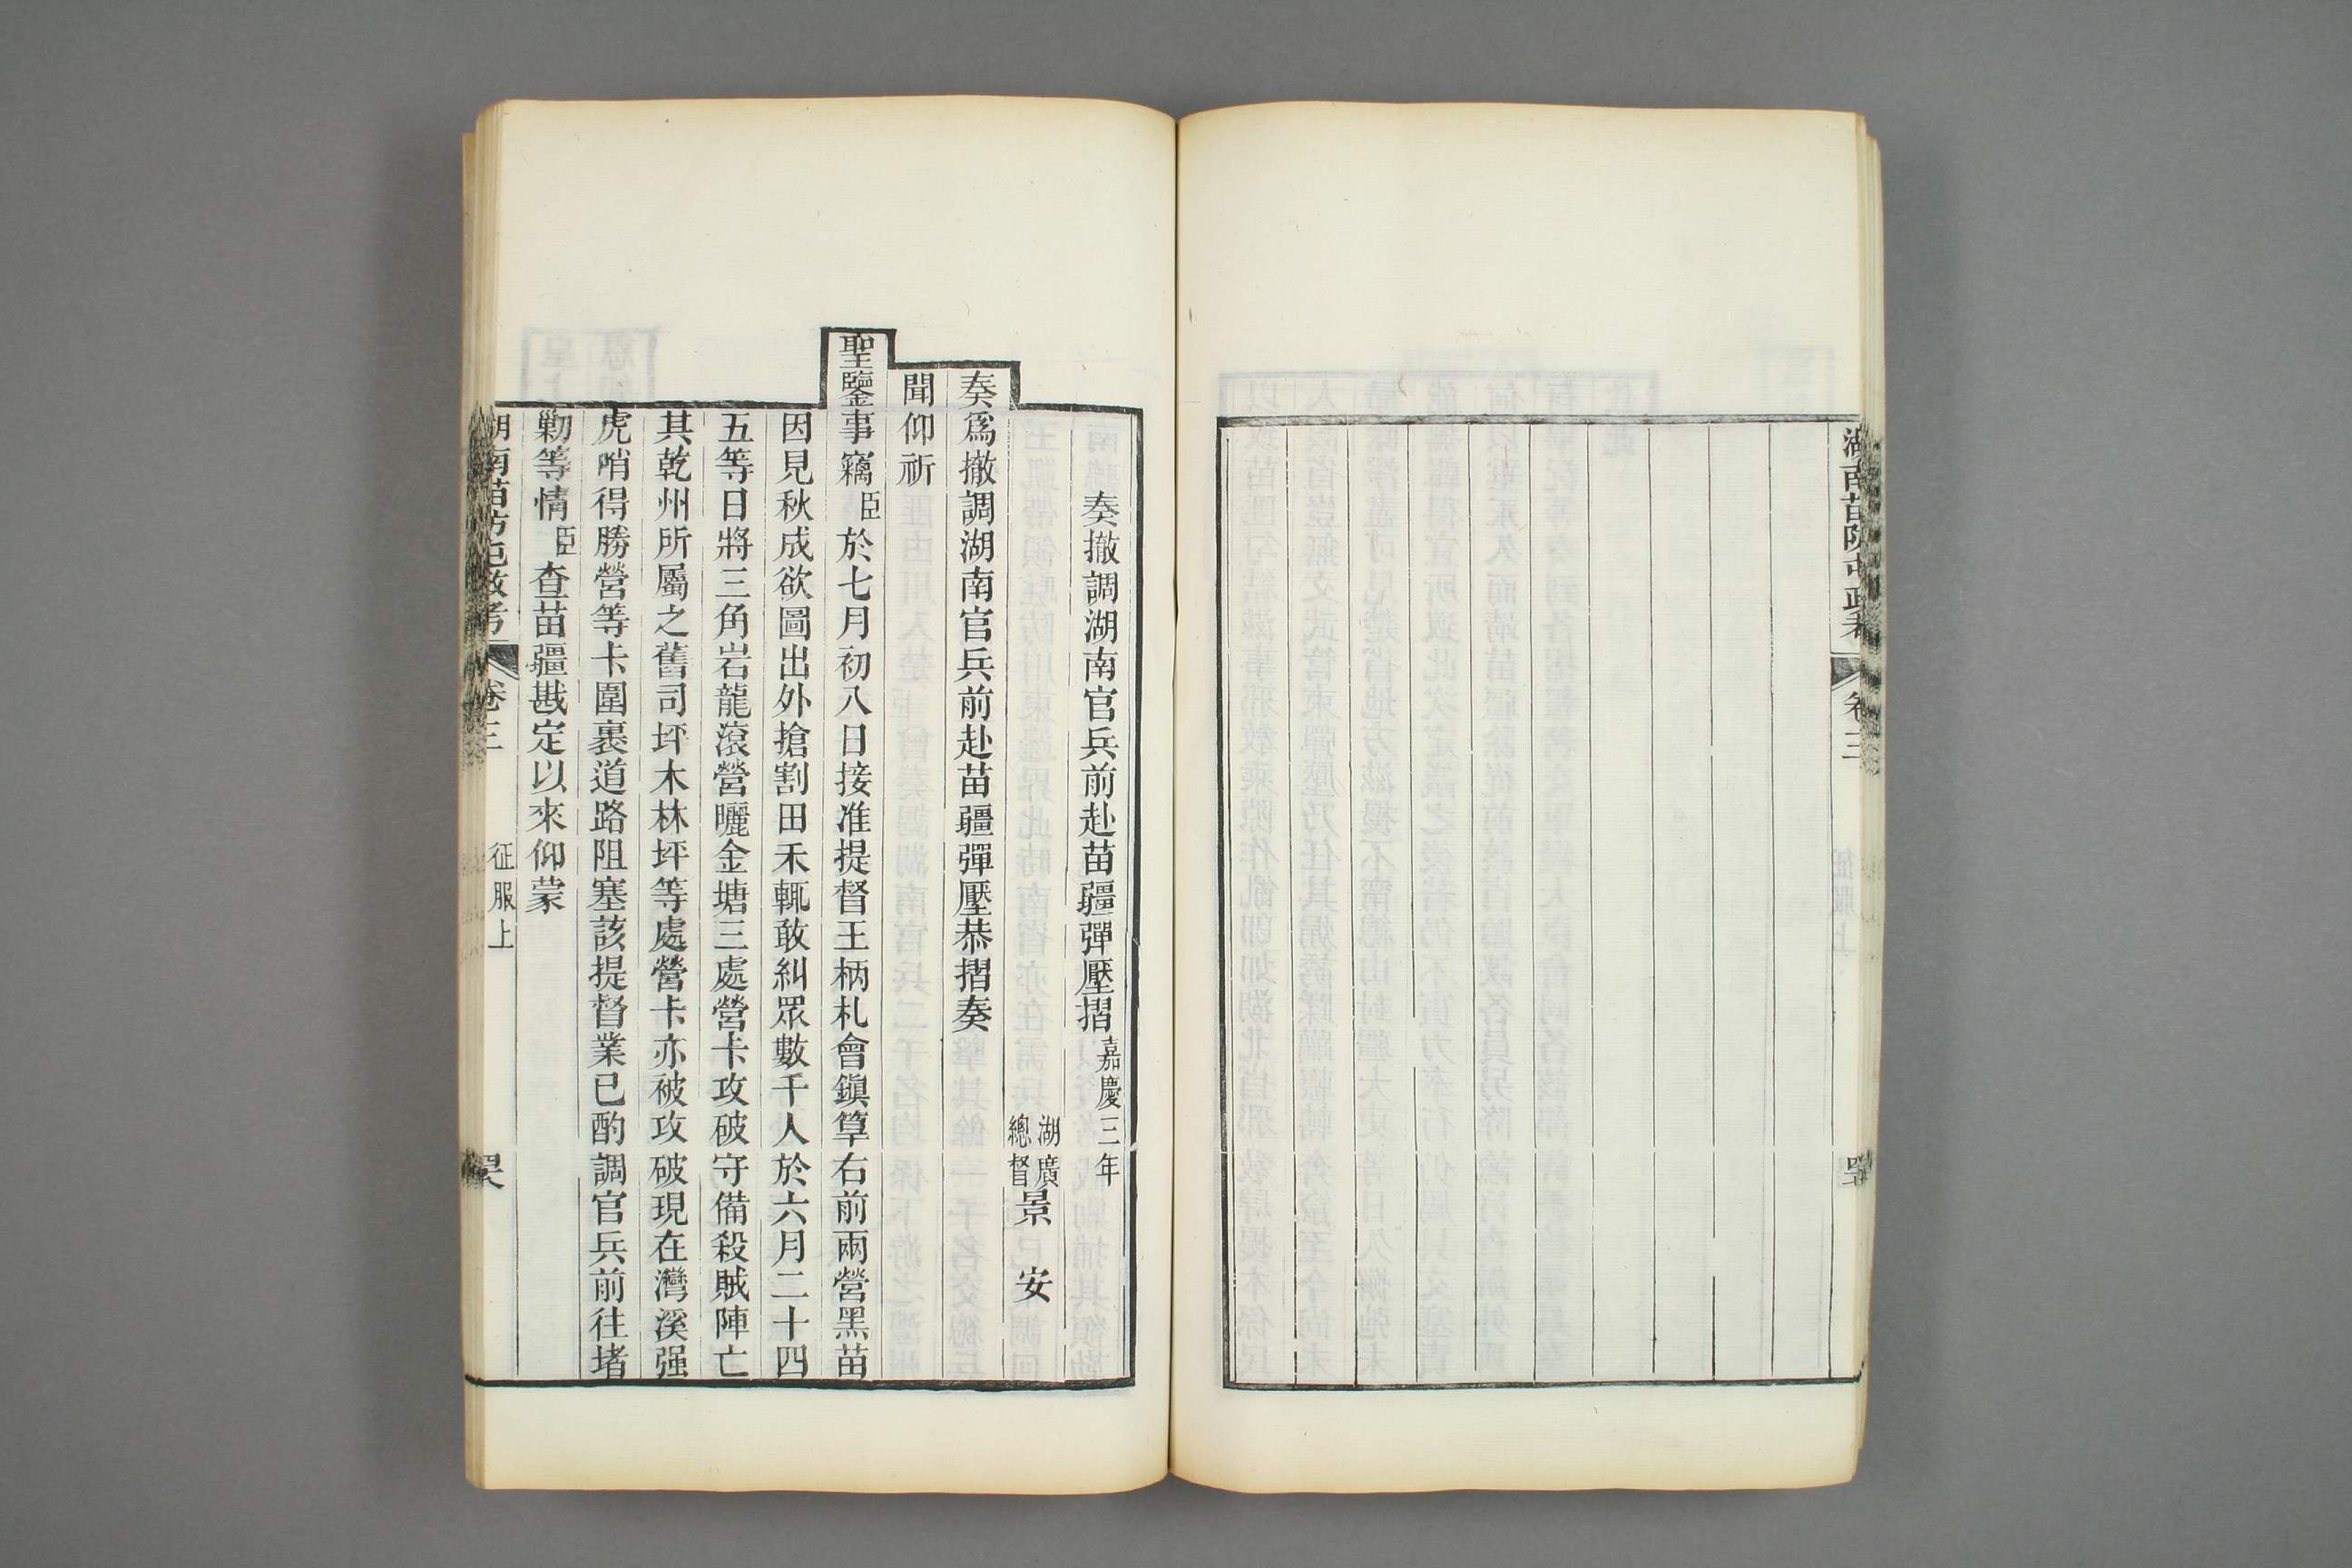 湖南苗防屯政考
卷三
奏撤調湖南官兵前赴苗疆彈壓摺嘉慶三年
湖廣總督景安
奏爲撤調湖南官兵前赴苗疆彈壓恭摺奏
聞仰祈
聖鑒事竊臣於七月初八日接准提督王柄札會鎭筸右前兩營黑苗
因見秋成欲圖出外搶割田禾輒敢糾眾數千人於六月二十四
五等日將三角岩龍滾營曬金塘三處營卡攻破守備殺賊陣亡
其乾州所屬之舊司坪木林坪等處營卡亦被攻破現在灣溪强
虎哨得勝營等卡圍裹道路阻塞該提督業已酌調官兵前往堵
勦等情臣查苗疆戡定以來仰蒙
湖南苗防屯政考
卷三
征服上